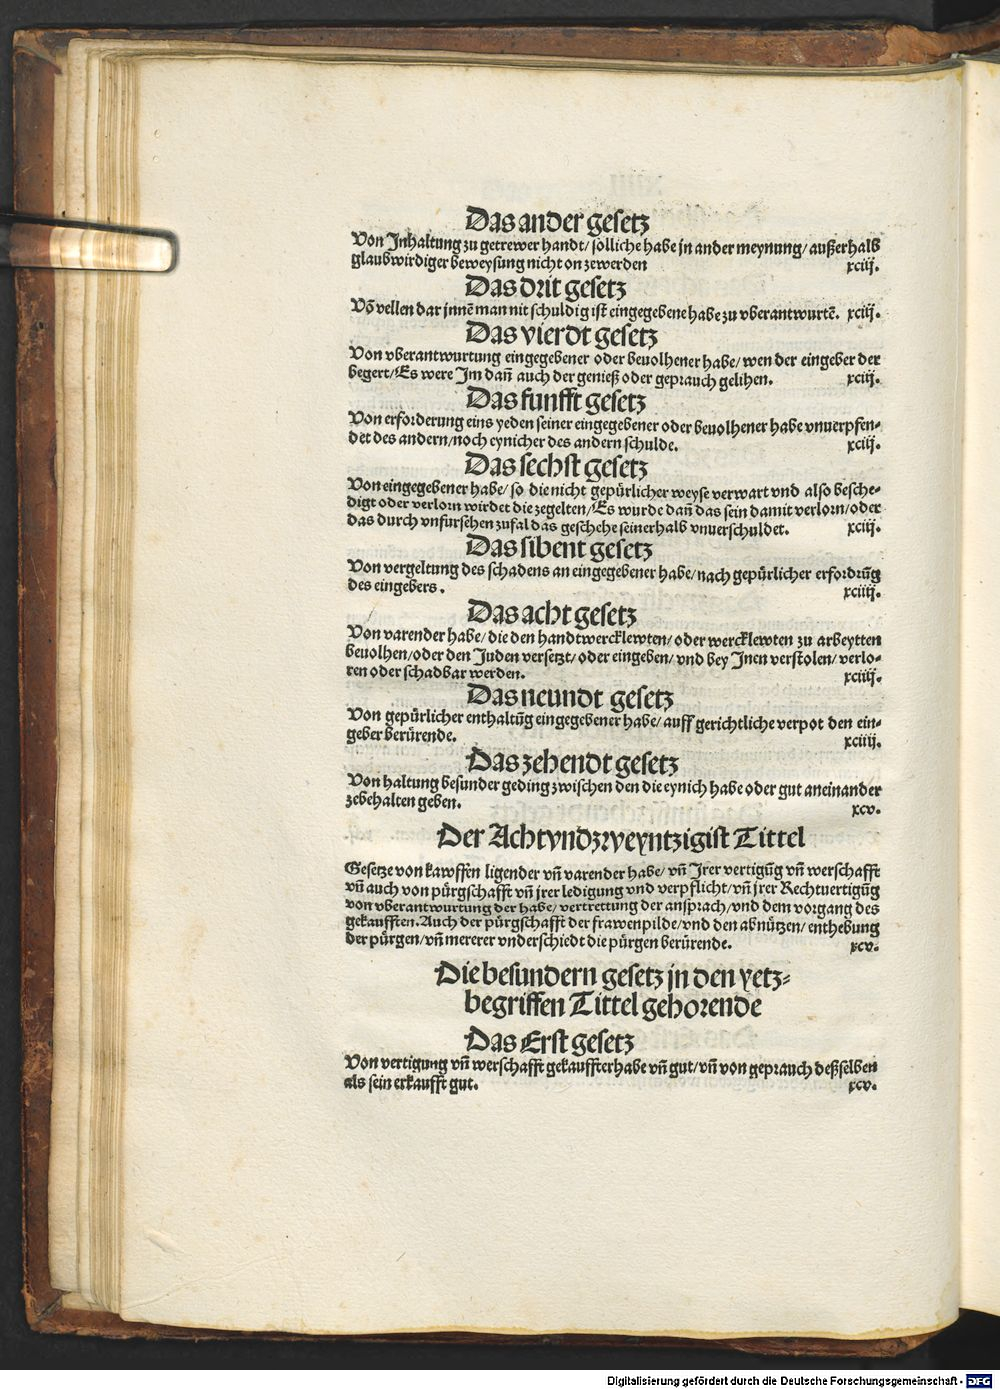 Das ander gesetz
Von Inhaltung zu getrewer handt/ sölliche habe in ander meynung/ außerhalb
glaubwirdiger beweysung nicht on zewerden xciij.
Das drit gesetz
Võ vellen dar jnnẽ man nit schuldig ist eingegebene habe zu vberantwurtẽ. xciij.
Das vierdt gesetz
Von vberantwurtung eingegebener oder beuolhener habe/ wen der eingeber der
begert/ Es were Im dañ auch der genieß oder geprauch gelihen. xciij.
Das funfft gesetz
Von erforderung eins yeden seiner eingegebener oder beuolhener habe vnuerpfen-
det des andern/ noch eynicher des andern schulde. xciij.
Das sechst gesetz
Von eingegebener habe/ so die nicht gepürlicher weyse verwart vnd also besche-
digt oder verlorn wirdet die zegelten/ Es wurde dañ das sein damit verlorn/ oder
das durch vnfursehen zufal das geschehe seinerhalb vnuerschuldet. xciij.
Das sibent gesetz
Von vergeltung des schadens an eingegebener habe/ nach gepürlicher erfordrũg
des eingebers. xciiij.
Das acht gesetz
Von varender habe/ die den handtwercklewten/ oder wercklewten zu arbeytten
beuolhen/ oder den Juden versetzt/ oder eingeben/ vnd bey Inen verstolen/ verlo-
ren oder schadbar werden. xciiij.
Das neundt gesetz
Von gepürlicher enthaltũg eingegebener habe/ auff gerichtliche verpot den ein-
geber berürende. xciiij.
Das zehendt gesetz
Von haltung besunder geding zwischen den die eynich habe oder gut aneinander
zebehalten geben. xcv.
Der Achtvndzweyntzigist Tittel
Gesetze von kawffen ligender vñ varender habe/ vñ Irer vertigũg vñ werschafft
vñ auch von pürgschafft vñ jrer ledigung vnd verpflicht/ vñ jrer Rechtuertigũg
von vberantwurtung der habe/ vertrettung der ansprach/ vnd dem vorgang des
gekaufften. Auch der pürgschafft der frawenpilde/ vnd den abnützen/ enthebung
der pürgen/ vñ mererer vnderschiedt die pürgen berürende. xcv.
Die besundern gesetz in den yetz-
begriffen Tittel gehorende
Das Erst gesetz
Von vertigung vñ werschafft gekauffter habe vñ gut/ vñ von geprauch deßselben
als sein erkaufft gut. xcv.
Digitalisierung gefördert durch die Deutsche Forschungsgemeinschaft - DFG